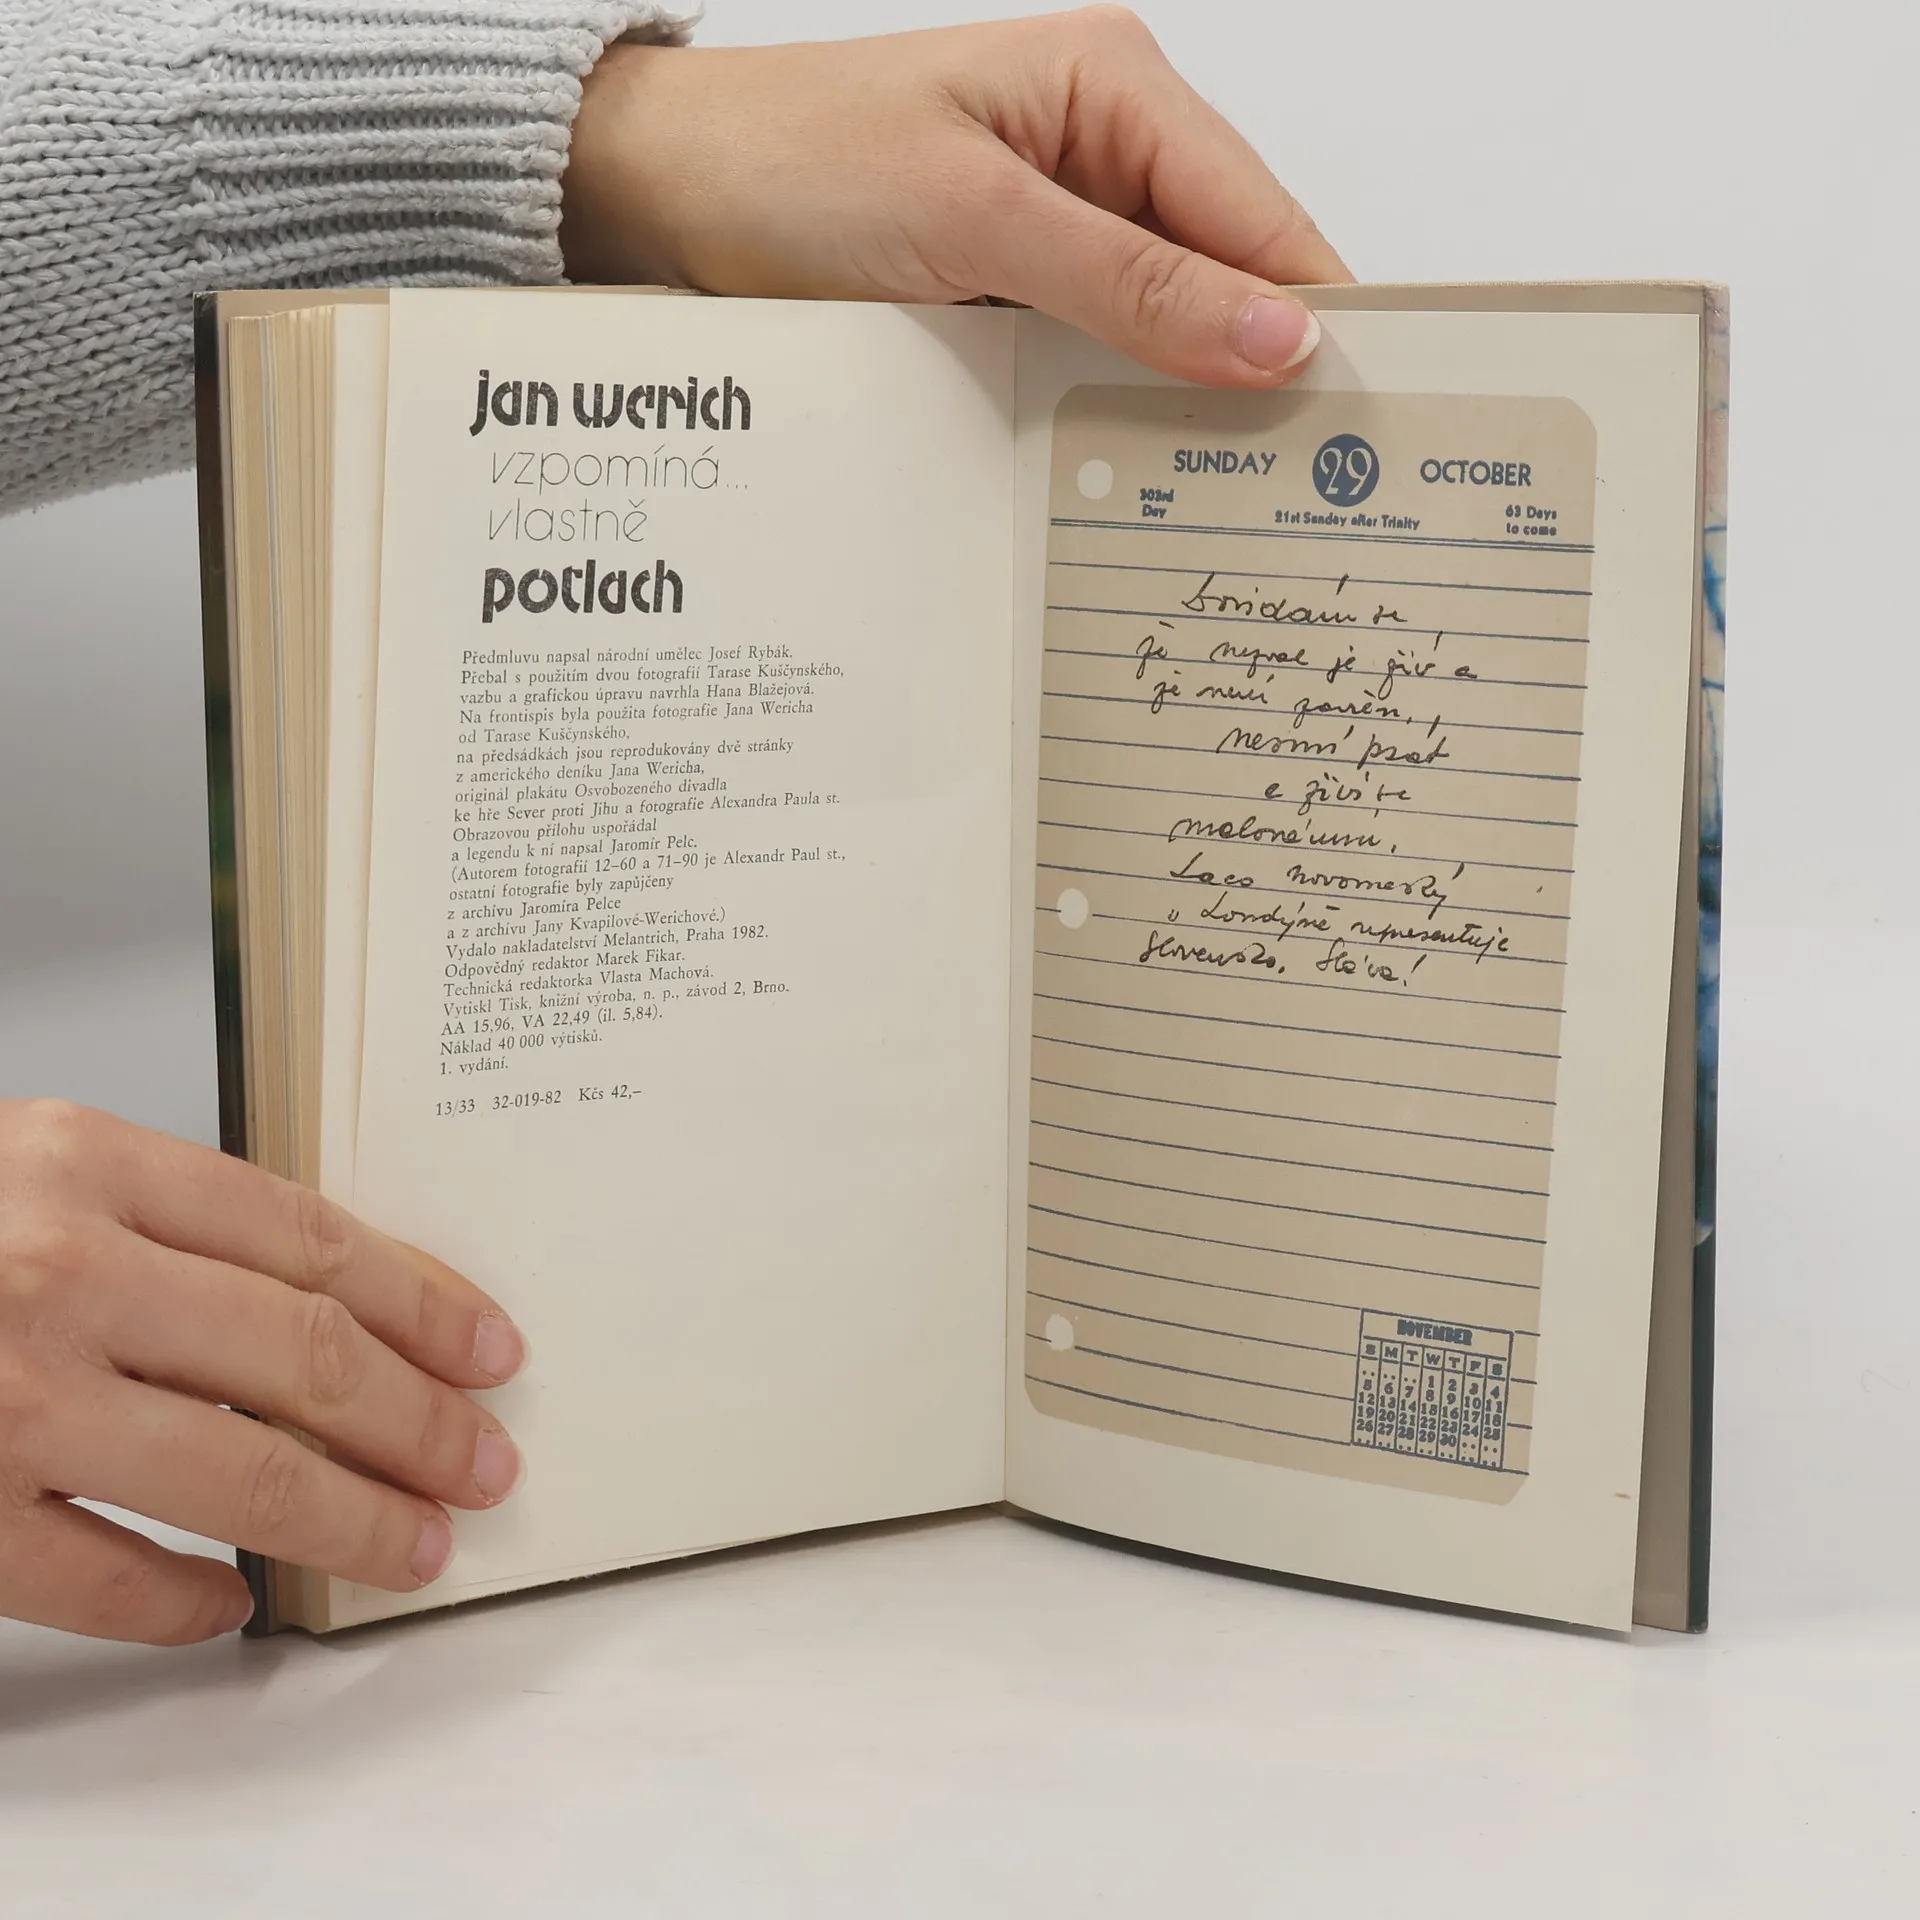 jan werich
vzpomíná...
vlastně
potlach
Předmluvu napsal národní umělec Josef Rybák.
Přebal s použitím dvou fotografií Tarase Kuščynského,
vazbu a grafickou úpravu navrhla Hana Blažejová.
Na frontispis byla použita fotografie Jana Wericha
od Tarase Kuščynského,
na předsádkách jsou reprodukovány dvě stránky
z amerického deníku Jana Wericha,
originál plakátu Osvobozeného divadla
ke hře Sever proti Jihu a fotografie Alexandra Paula st.
Obrazovou přílohu uspořádal
a legendu k ní napsal Jaromír Pelc.
(Autorem fotografií 12–60 a 71–90 je Alexandr Paul st.,
ostatní fotografie byly zapůjčeny
z archívu Jaromíra Pelce
a z archívu Jany Kvapilové-Werichové.)
Vydalo nakladatelství Melantrich, Praha 1982.
Odpovědný redaktor Marek Fikar.
Technická redaktorka Vlasta Machová.
Vytiskl Tisk, knižní výroba, n. p., závod 2, Brno.
AA 15,96, VA 22,49 (il. 5,84).
Náklad 40 000 výtisků.
1. vydání.
13/33 32-019-82 Kčs 42,–
SUNDAY 29 OCTOBER
303rd Day 21st Sunday after Trinity 63 Days to come
Dovídám se,
že nezval je živ a
že není zavřen,
nesmí psát
a živí se
malováním.
Laco Novomeský
v Londýně representuje
Slovensko. Sláva!
NOVEMBER
S M T W T F S
.. .. .. 1 2 3 4
5 6 7 8 9 10 11
12 13 14 15 16 17 18
19 20 21 22 23 24 25
26 27 28 29 30 .. ..
.. .. .. .. .. .. ..